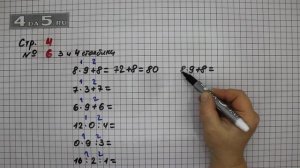 4
DA5.RU
Стр. 4
№ 6 3 и 4 столбики
1 2
8·9+8=72+8=80 8·9+8=
1 2
7·3+7=
1 2
6·9+6=
1 2
12·0:4=
1 2
0·9:3=
1 2
16:2:1=